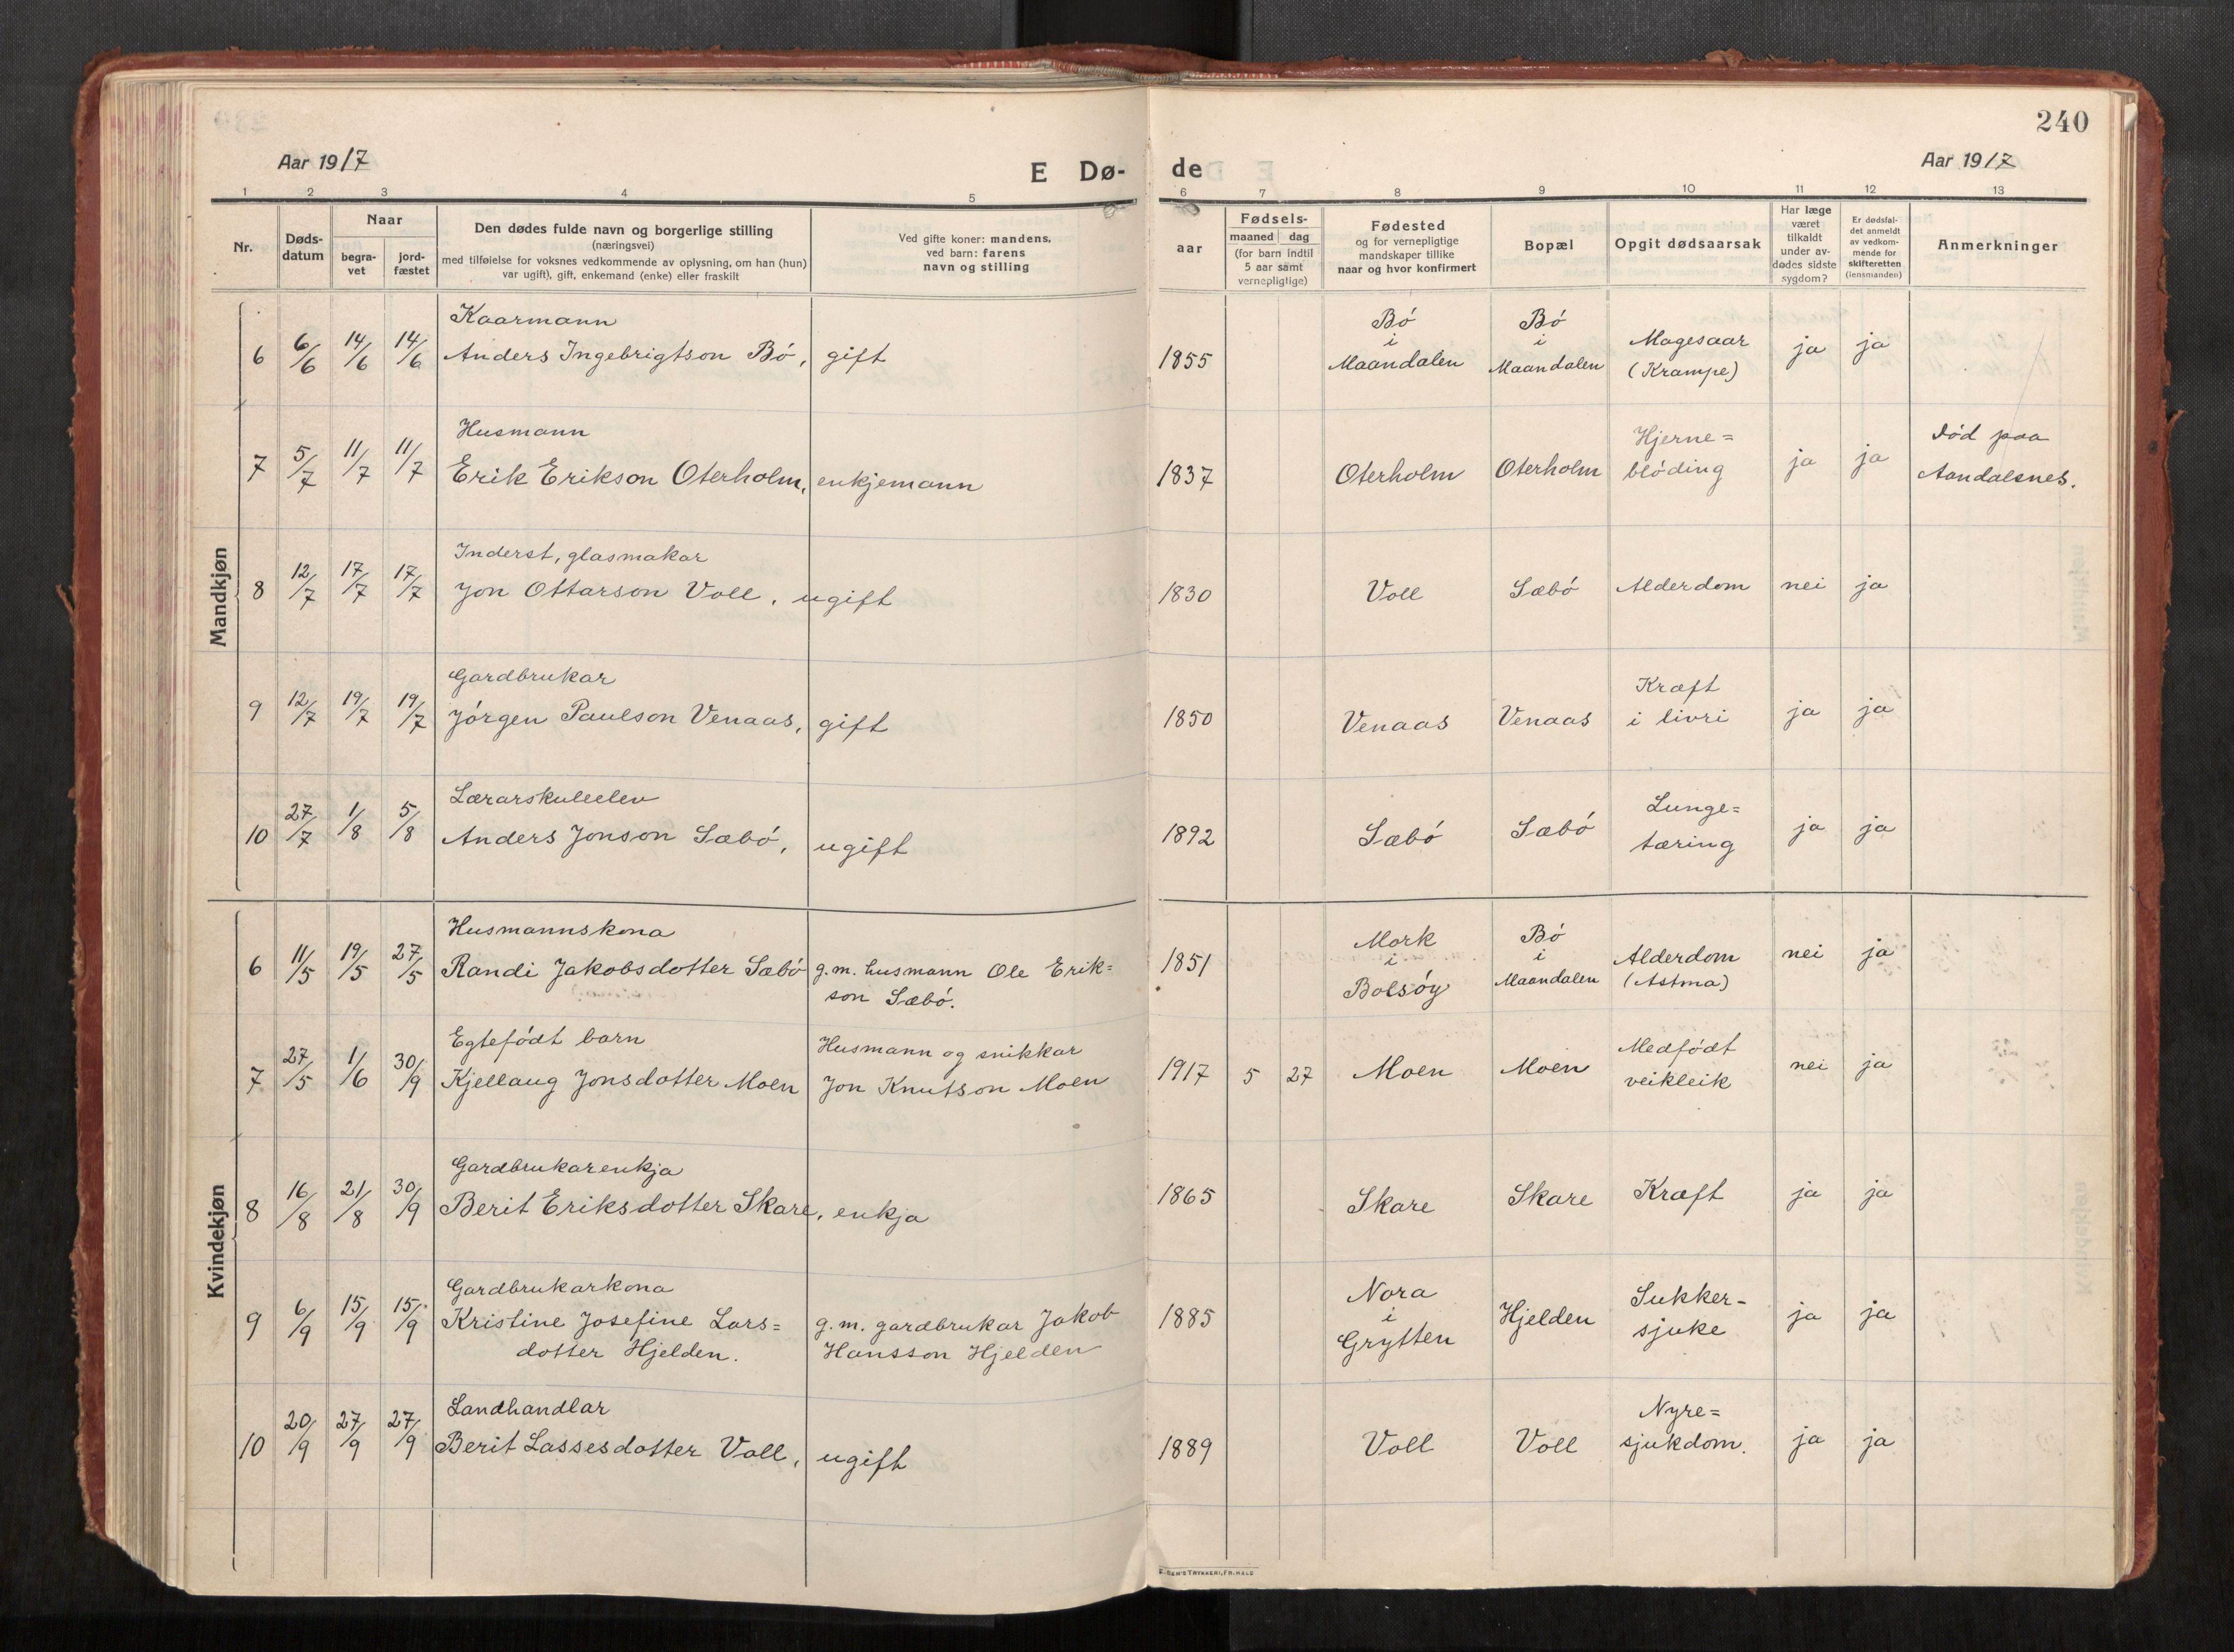 240
Aar 1917
E Dø- de
Aar 1917
1 2 3 4 5 6 7 8 9 10 11 12 13
Nr.
Døds-
datum
Naar
begra-
vet
jord-
fæstet
Den dødes fulde navn og borgerlige stilling
(næringsvei)
med tilføielse for voksnes vedkommende av oplysning, om han (hun)
var ugift), gift, enkemand (enke) eller fraskilt
Ved gifte koner: mandens,
ved barn: farens
navn og stilling
aar
Fødsels-
maaned dag
(for barn indtil
5 aar samt
vernepligtige)
Fødested
og for vernepligtige
mandskaper tillike
naar og hvor konfirmert
Bopæl
Opgit dødsaarsak
Har læge
været
tilkaldt
under av-
dødes sidste
sygdom?
Er dødsfal-
det anmeldt
av vedkom-
mende for
skifteretten
(lensmanden)
Anmerkninger
Mandkjøn
Kaarmann
6 6/6 14/6 14/6 Anders Ingebrigtson Bó, gift 1855 Bó i Maandalen Bó i Maandalen Magesaar (Krampe) ja ja
Husmann
7 5/7 11/7 11/7 Erik Erikson Oterholm, enkjemann 1837 Oterholm Oterholm Hjerne= blóding ja ja Død paa Aandalsnes.
Inderst, glasmakar
8 12/7 17/7 17/7 Jon Ottarson Voll, ugift 1830 Voll Sæbó Alderdom nei ja
Gardbrukar
9 12/7 19/7 19/7 Jórgen Paulson Venaas, gift 1850 Venaas Venaas Kræft i livri ja ja
Lærarskuleelev
10 27/7 1/8 5/8 Anders Jonson Sæbó, ugift 1892 Sæbó Sæbó Lunge= tæring ja ja
Kvindekjøn
Husmannskona
6 11/5 19/5 27/5 Randi Jakobsdotter Sæbó g.m. husmann Ole Erik= son Sæbó. 1851 Mork i Bolsóy Bó i Maandalen Alderdom (Astma) nei ja
Egtefódt barn
7 27/5 1/6 30/9 Kjellaug Jonsdotter Moen Husmann og snikkar Jon Knutson Moen 1917 5 27 Moen Moen Medfódt veikleik nei ja
Gardbrukarenkja
8 16/8 21/8 30/9 Berit Eriksdotter Skare, enkja 1865 Skare Skare Kræft ja ja
Gardbrukarkona
9 6/9 15/9 15/9 Kristine Josefine Lars= dotter Hjelden. g.m. gardbrukar Jakob Hansson Hjelden 1885 Nora i Grytten Hjelden Sukker- sjuke ja ja
Landhandlar
10 20/9 27/9 27/9 Berit Lassesdotter Voll, ugift 1889 Voll Voll Nyre= sjukdom. ja ja